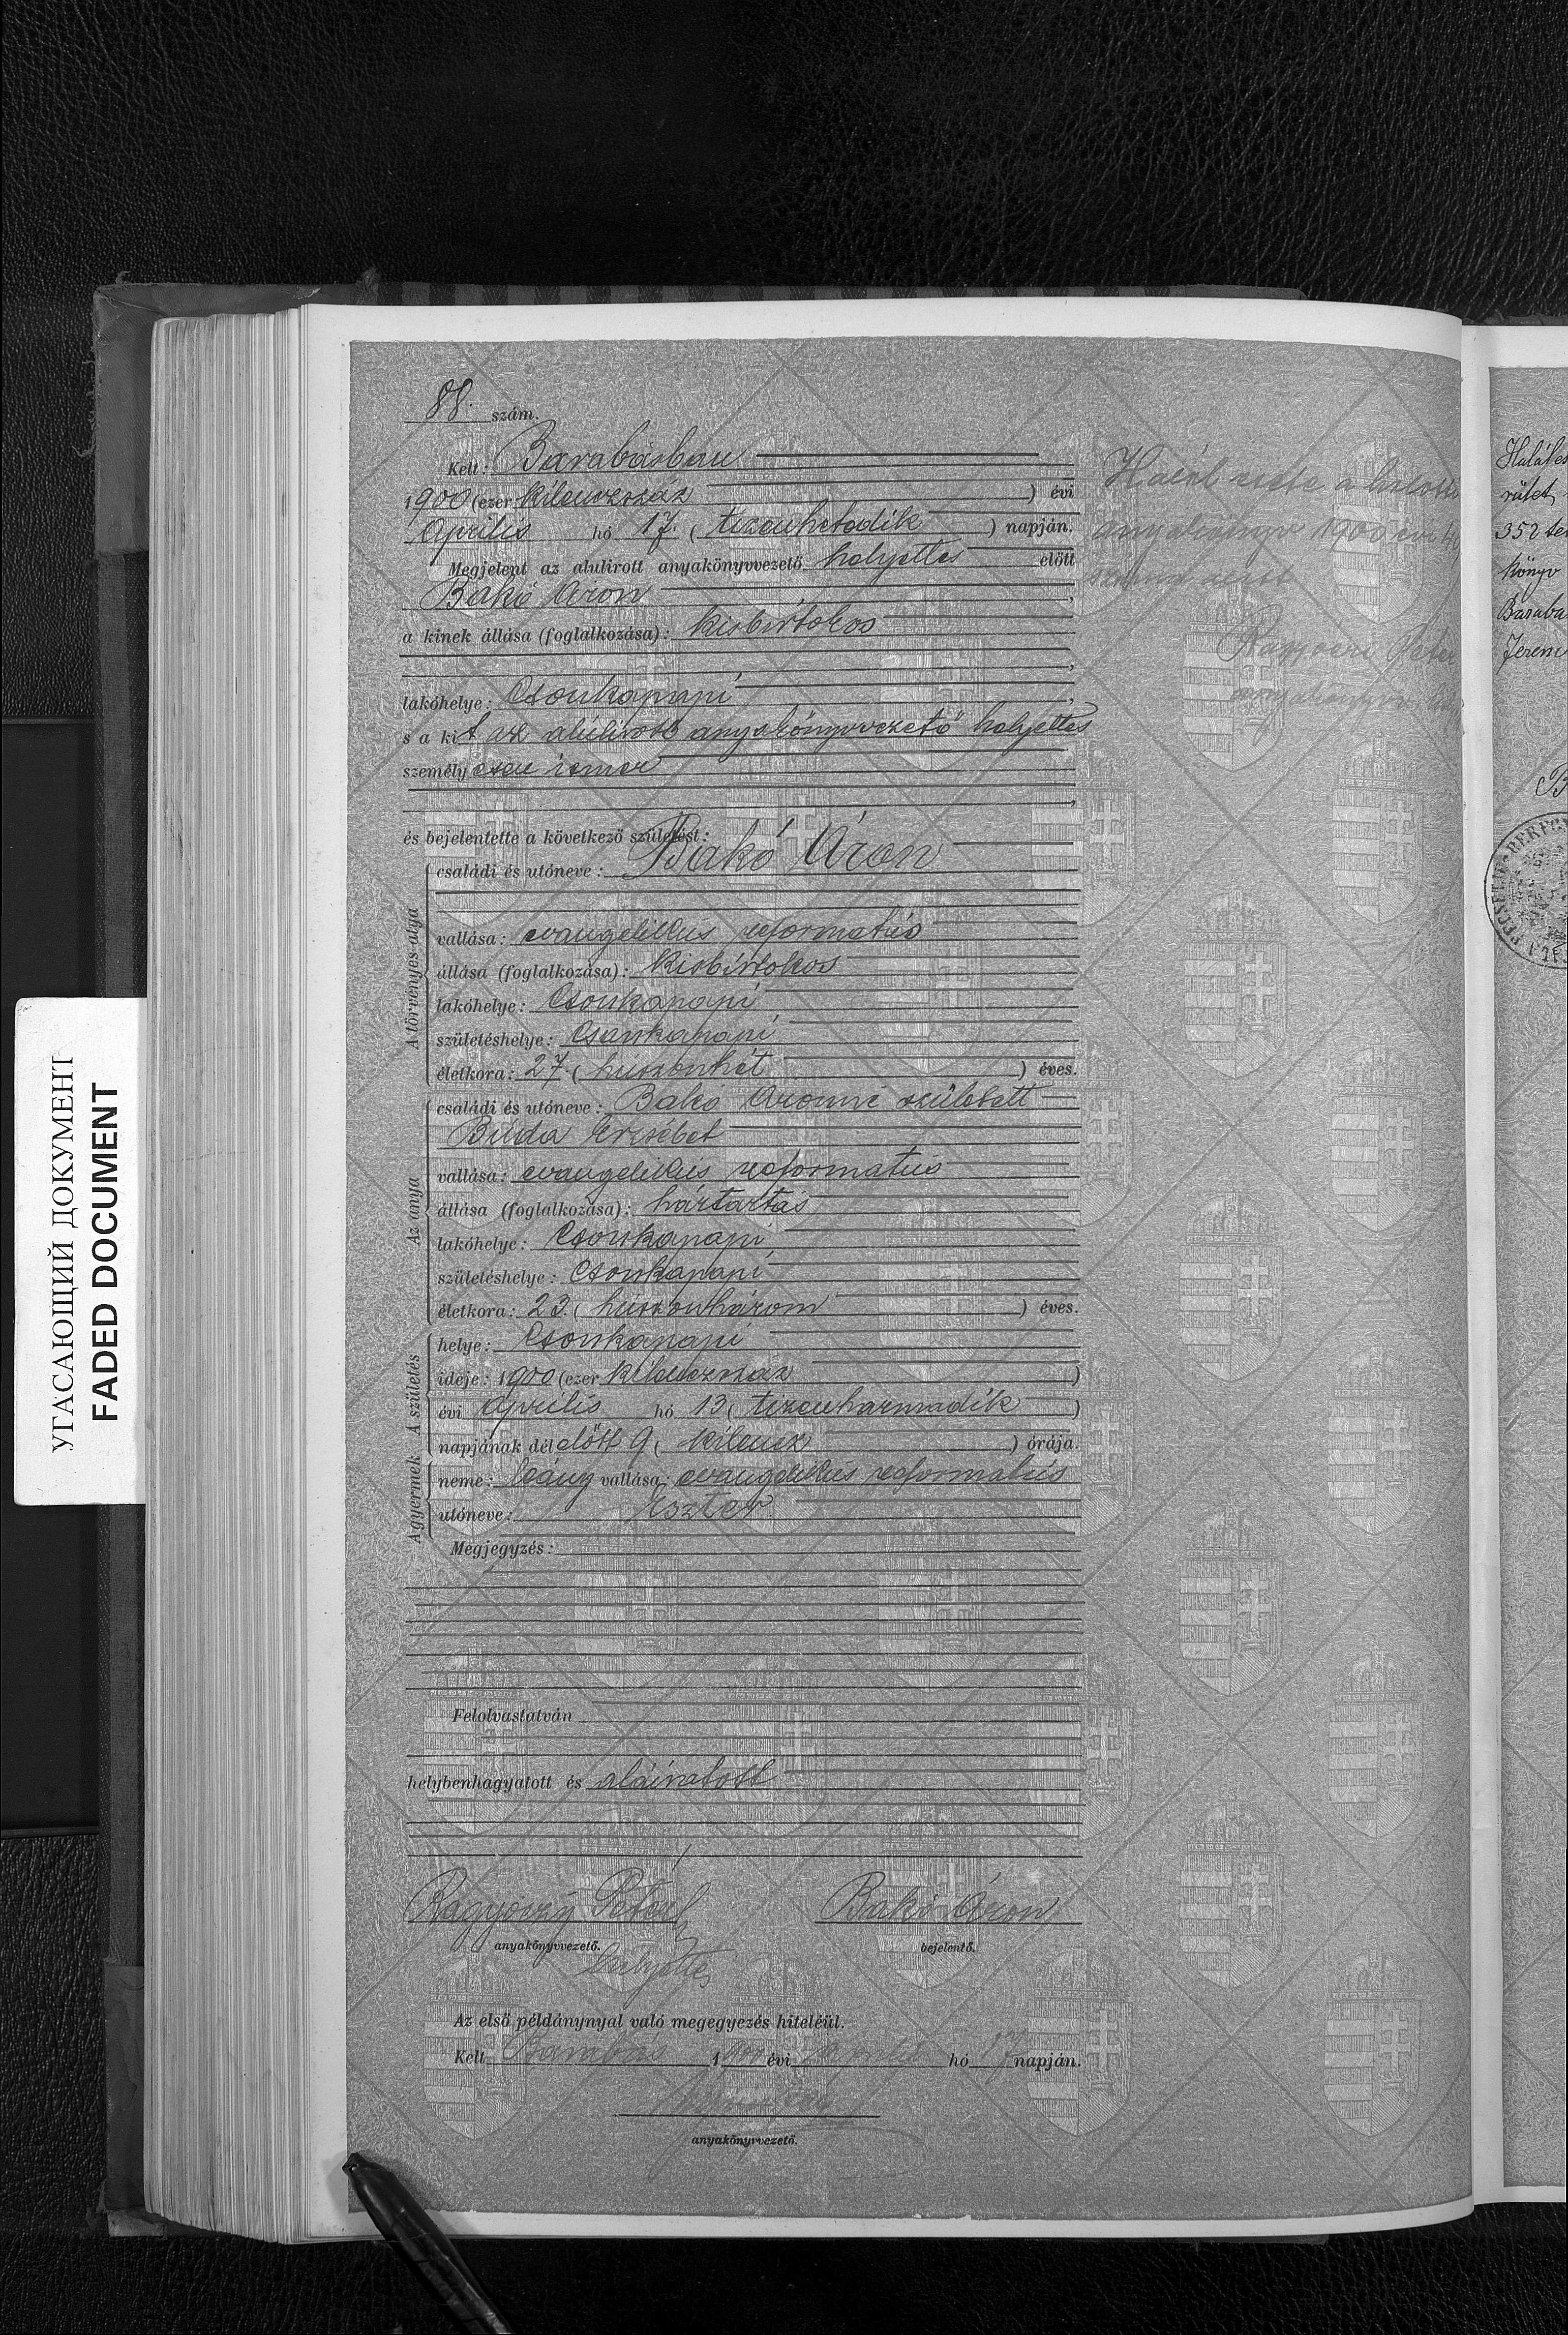 88. szám.
Kelt: Barabásban
1900 (ezer kilenczszáz) évi
április hó 17. (tizenhetedik) napján.
Megjelent az alulirott anyakönyvvezető helyettes előtt
Bakó Áron,
a kinek állása (foglalkozása): kisbirtokos
,
lakóhelye: Csonkapapi,
s a kit az alúlirott anyakönyvvezető helyettes
személyesen ismer
,
és bejelentette a következő születést:
A törvényes atya
családi és utóneve: Bakó Áron
vallása: evangelikus reformatús
állása (foglalkozása): kisbirtokos
lakóhelye: Csonkapapi
születéshelye: Csonkapapi
életkora: 27. (húszonhét) éves.
Az anya
családi és utóneve: Bakó Áronné született
Buda Erzsébet
vallása: evangelikús reformatús
állása (foglalkozása): háztartás
lakóhelye: Csonkapapi
születéshelye: Csonkapapi
életkora: 23. (húszonhárom) éves.
A születés
helye: Csonkapapi
ideje: 1900 (ezer kilenczszáz)
évi április hó 13 (tizenharmadik)
napjának délelőtt 9 (kilencz) órája.
A gyermek
neme: leány vallása: evangelikús reformatús
utóneve: Eszter
Megjegyzés:
Felolvastatván
helybenhagyatott és aláiratott
Ragyoczy Péter Bakó Áron
anyakönyvvezető. bejelentő.
helyettes
Az első példánynyal való megegyezés hiteléül.
Kelt Barabás 1900 évi április hó 17 napján.
anyakönyvvezető.
Halál esete a halotti
anyakönyv 1900 évi
szám alatt
Péter
УГАСАЮЩИЙ ДОКУМЕНТ
FADED DOCUMENT
352
könyv